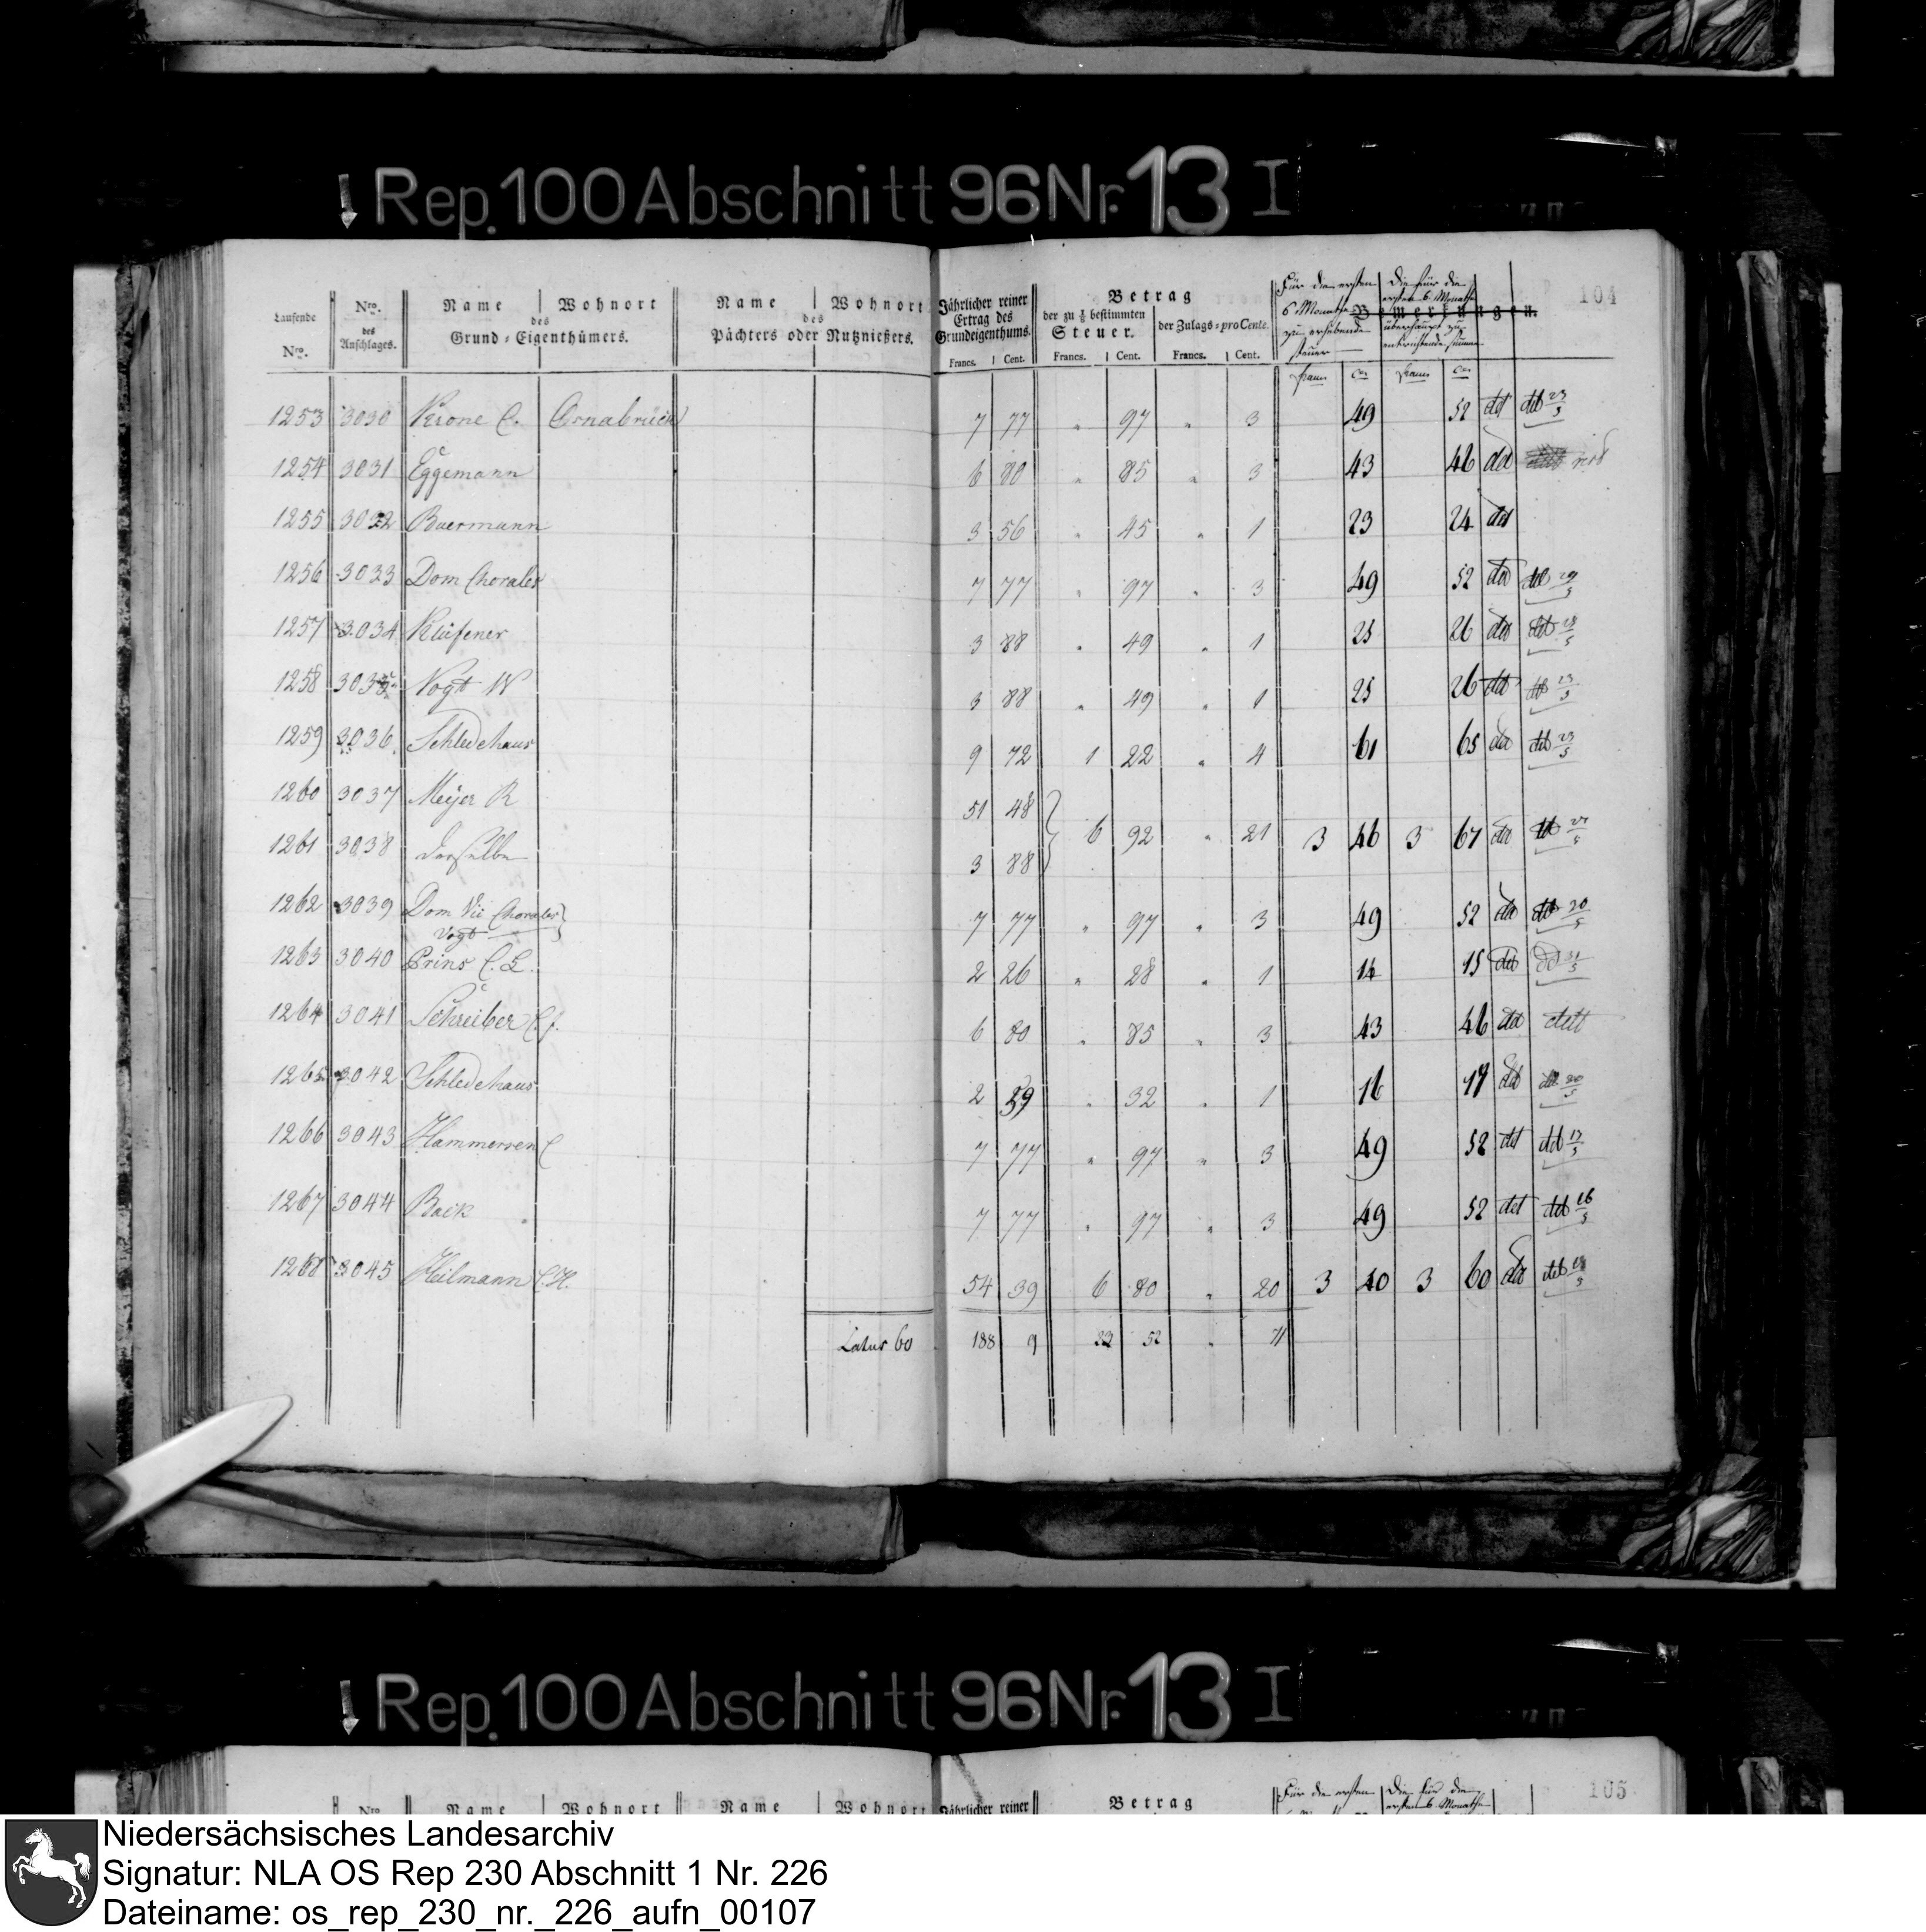 Rep. 100 Abschnitt 96 Nr. 13 I
104
Laufende Nro.
Nro. des Anschlages.
Name Wohnort
des
Grund-Eigenthümers.
Name Wohnort
des
Pächters oder Nutznießers.
Jährlicher reiner
Ertrag des
Grundeigenthums.
Francs. Cent.
Betrag
der zu 1/8 bestimmten
Steuer.
Francs. Cent.
der Zulags-pro Cente.
Francs. Cent.
Für die ersten
6 Monathe
zu erhebende
Steuer
Die für die
ersten 6 Monathe
überhaupt zu
entrichtende Summe
Bemerkungen.
Franc Franc
1253 3030 Krone C. Osnabrück 7 77 " 97 " 3 49 52 dd 23/5
1254 3031 Eggemann 6 80 " 85 " 3 43 46
1255 3032 Buermann 3 56 " 45 " 1 23 24
1256 3033 Dom Chorales 7 77 " 97 " 3 49 52
1257 3034 Klüsener 3 88 " 49 " 1 25 26
1258 3035 Vogt W 3 88 " 49 " 1 25 26
1259 3036 Schledehaus 9 72 1 22 " 4 61 65
1260 3037 Meyer R 51 48
1261 3038 derselbe 3 88 6 92 " 21 3 46 3 67
1262 3039 Dom Vic Chorales 7 77 " 97 " 3 49 52
Vogt
1263 3040 Prins C. L. 2 26 " 28 " 1 14 15
1264 3041 Schreiber C. f. 6 80 " 85 " 3 43 46
1265 3042 Schledehaus 2 59 " 32 " 1 16 17
1266 3043 Hammersen C 7 77 " 97 " 3 49 52
1267 3044 Back 7 77 " 97 " 3 49 52
1268 3045 Heilmann C. H. 54 39 6 80 " 20 3 40 3 60
Latus 60 188 9 23 52 " 71
Rep. 100 Abschnitt 96 Nr. 13 I
105
Nro. Name Wohnort Name Wohnort Jährlicher reiner Betrag
Für die ersten Die für die
ersten 6 Monathe
Niedersächsisches Landesarchiv
Signatur: NLA OS Rep 230 Abschnitt 1 Nr. 226
Dateiname: os_rep_230_nr._226_aufn_00107